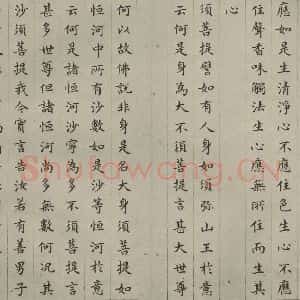 應如是生清淨心不應住色生心不應
住聲香味觸法生心應無所住而生其
心
須菩提譬如有人身如須弥山王於意
云何是身為大不須菩提言甚大世尊
何以故佛說非身是名大身須菩提如
恒河中所有沙數如是沙等恒河於意
云何是諸恒河沙寧為多不須菩提言
甚多世尊但諸恒河尚多無數何況其
沙須菩提我今實言告汝若有善男子
Shufawang.CN